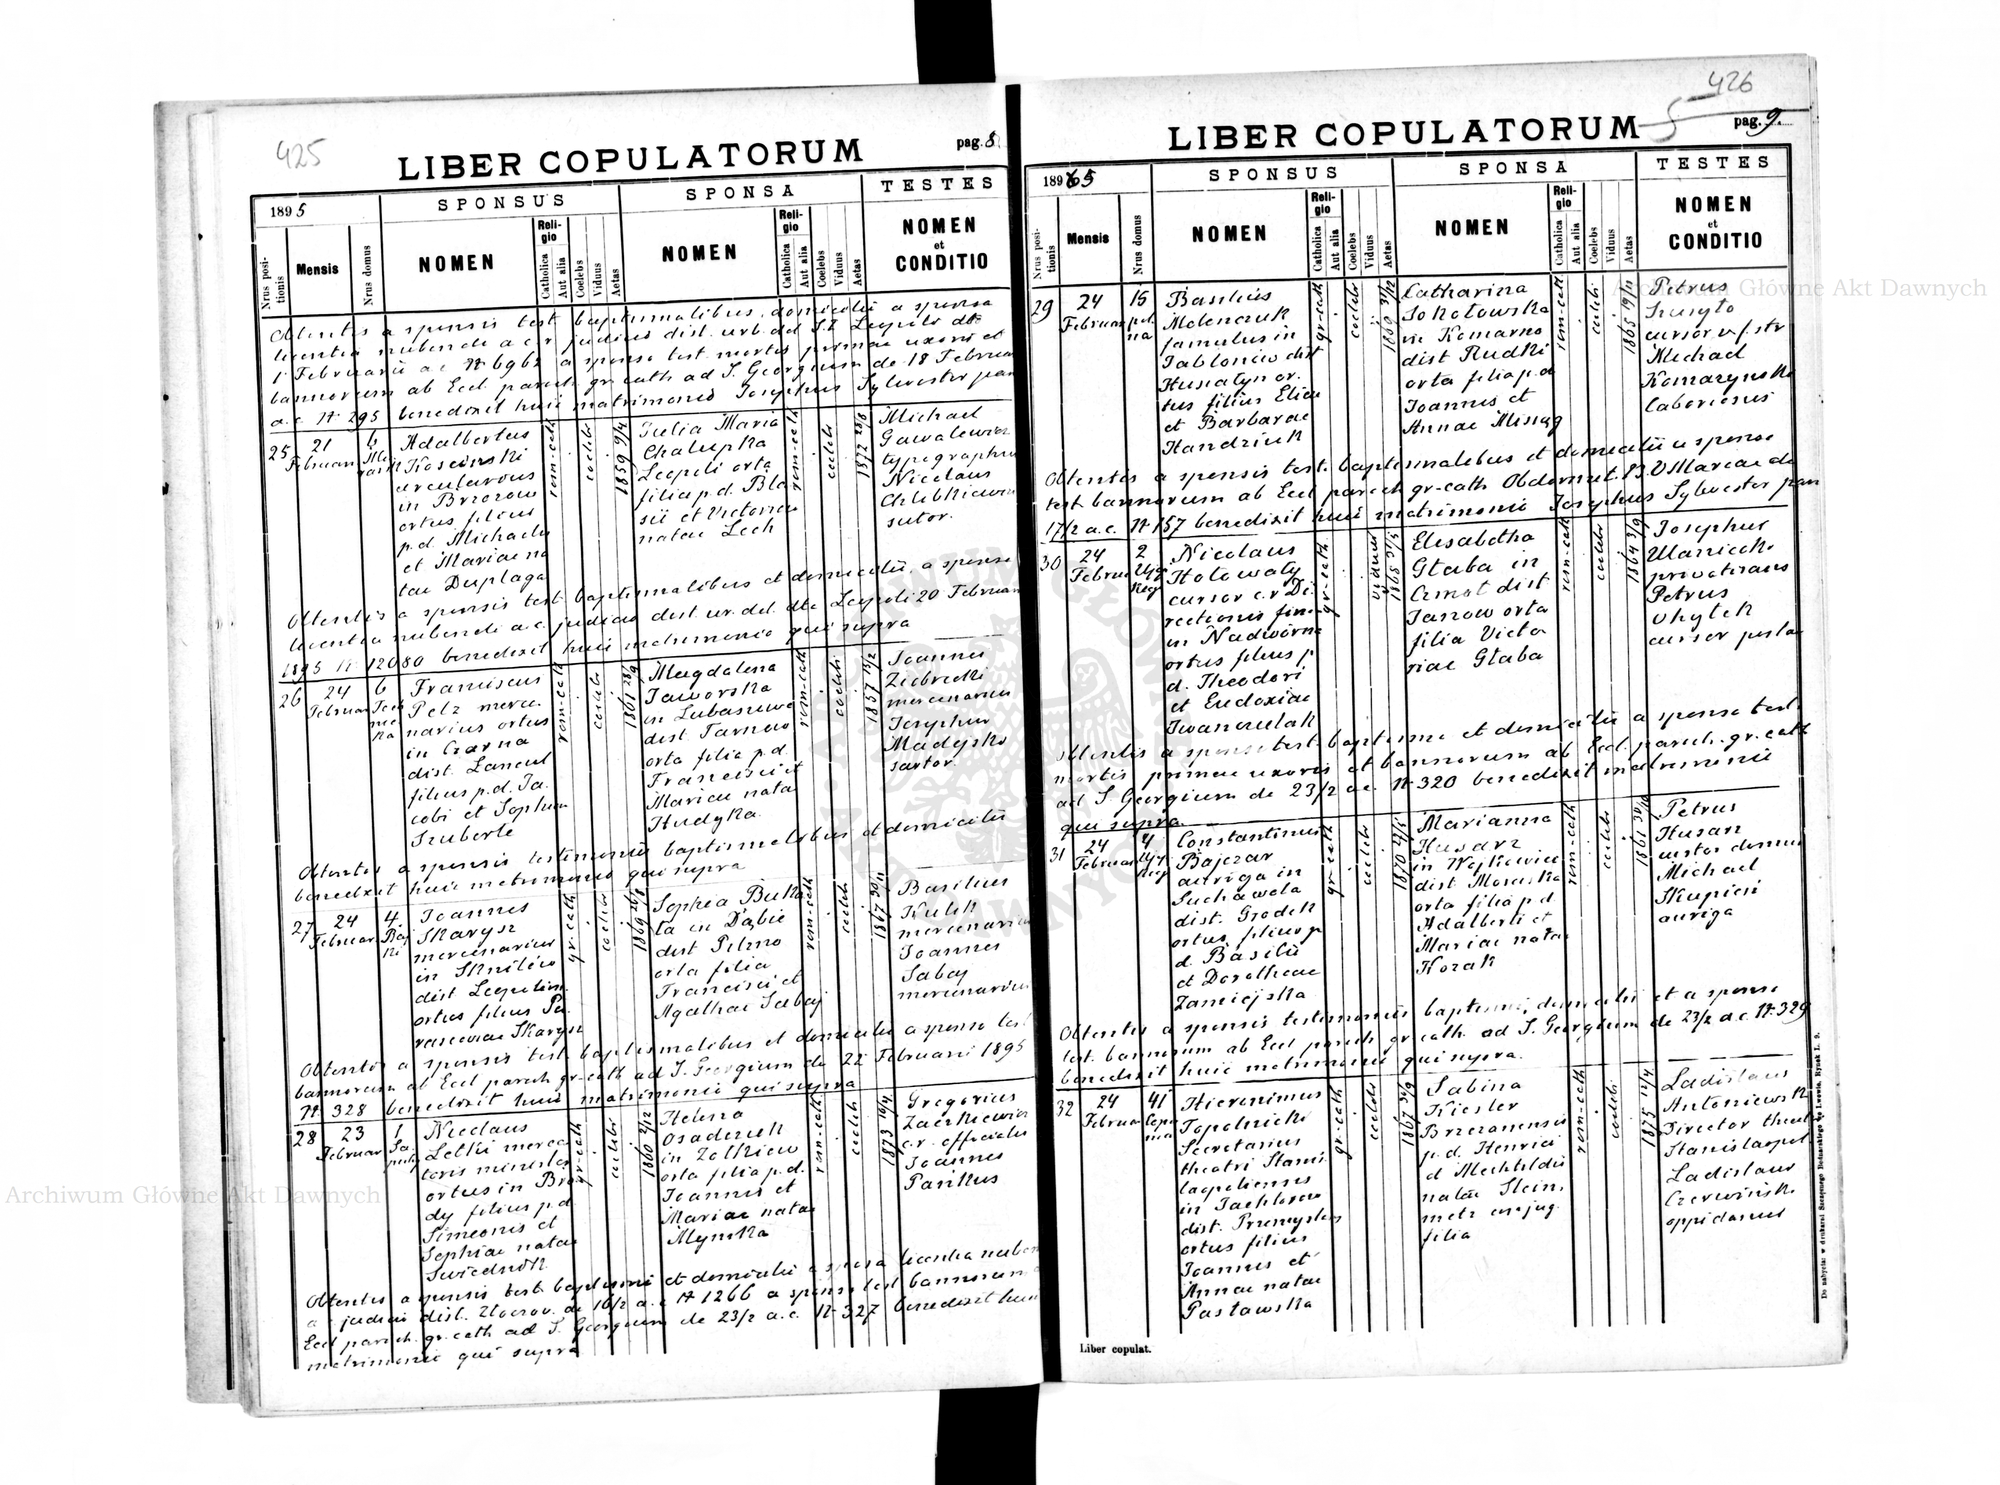 425
LIBER COPULATORUM
pag. 8.
1895
SPONSUS
SPONSA
TESTES
Nrus positionis
Mensis
Nrus domus
NOMEN
Religio
Catholica
Aut alia
Coelebs
Viduus
Aetas
NOMEN
Religio
Catholica
Aut alia
Coelebs
Viduus
Aetas
NOMEN
et
CONDITIO
Obtentis a sponsis test baptismalibus, domicilii a sponsa
licentia nubendi a c.r. judicio dist. urb. del. S. I. Leopoli dto
1 Februarii a c. N 6962 a sponso test. mortis primae uxoris et
bannorum ab Eccl paroch gr. cath ad S. Georgium de 18 Februar
a.c. N 295 benedixit huic matrimonio Josephus Sylvester
25
21
Februar
6
Adalbertus
Kosciński
arcularius
in Brzozow
ortus filius
p.d. Michaelis
et Mariae na
tae Duplaga
rom-cath
coelebs
1859 9/4
Julia Maria
Chalupka
Leopoli orta
filia p.d. Bla
sii et Victoriae
natae Lech
rom-cath
coelebs
1872
Michael
Gawalewicz
typographus
Nicolaus
Chlebkiewicz
sutor.
Obtentis a sponsis test. baptismalibus et domicilii, a sponsa
licentia nubendi a c. judicio dist. ur. del. dto Leopoli 20 Februar
1895 N 12080 benedixit huic matrimonio qui supra
26
24
Februar
6
Franciscus
Pelz merce
narius ortus
in Czarna
dist. Lancut
filius p.d. Ja
cobi et Sophiae
Szuberle
rom-cath
coelebs
1861 28/9
Magdalena
Jaworska
in Lubaszowa
dist. Tarnow
orta filia p.d.
Francisci et
Mariae nata
Hudyka
rom-cath
coelebs
1857 15/2
Joannes
Ziobrecki
mercenarius
Josephus
Madejski
sartor.
Obtentis a sponsis testimoniis baptismalibus et domicilii
benedixit huic matrimonio qui supra
27
24
Februar
4
Baj
ki
Joannes
Skarysz
mercenarius
in Skniłów
dist Leopolien.
ortus filius Pa
rasceviae Skarysz
gr-cath
coelebs
1869
Sophia Buka
ta in Dąbie
dist Pilzno
orta filia
Francisci et
Agathae Sabaj
rom-cath
coelebs
1867 30/11
Basilius
Kulik
mercenarius
Joannes
Sabaj
mercenarius
Obtentis a sponsis test. baptismalibus et domicilii a sponso test
bannorum ab Eccl paroch gr-cath ad S. Georgium de 22 Februarii 1895
N 328 benedixit huic matrimonio qui supra
28
23
Februar
1
Nicolaus
Letki merca
toris minister
ortus in Bro
dy filius p.d.
Simeonis et
Sophiae natae
Świednik
gr-cath
coelebs
1860 2/12
Helena
Osadczuk
in Zolkiew
orta filia p.d.
Joannis et
Mariae natae
Młynska
rom-cath
coelebs
1873 16/4
Gregorius
Zaczkiewicz
c.r. officialis
Joannes
Parikus
Obtentis a sponsis test baptismi et domicilii a sponsa licentia nuben
a c judicio dist. Zloczov. de 16/2 a.c N 1266 a sponso test bannorum
Eccl paroch. gr. cath ad S. Georgium de 23/2 a.c. N 327 benedixit huic
matrimonio qui supra
426
LIBER COPULATORUM
pag. 9.
1895
SPONSUS
SPONSA
TESTES
Nrus positionis
Mensis
Nrus domus
NOMEN
Religio
Catholica
Aut alia
Coelebs
Viduus
Aetas
NOMEN
Religio
Catholica
Aut alia
Coelebs
Viduus
Aetas
NOMEN
et
CONDITIO
29
24
Februar
15
Basilius
Molenczuk
famulus in
Jabłoniów dist
Husiatyn or.
tus filius Eliae
et Barbarae
Handziuk
gr-cath
coelebs
1869 31/12
Catharina
Sokołowska
in Komarno
dist Rudki
orta filia p.d
Joannis et
Annae Missiąg
rom-cath
coelebs
1865 19/11
Petrus
Michael
Komarynski
laboriosus
Obtentis a sponsis test. baptismalibus et domicilii a sponso
test bannorum ab Eccl paroch gr-cath Obdormit. B.V Mariae de
17/2 a.c. N 157 benedixit huic matrimonio Josephus Sylvester
30
24
Februar
2
Nicolaus
Hołowaty
cursor c.r Di.
rectionis finan
in Nadwórna
ortus filius p
d. Theodori
et Eudoxiae
Iwanczulak
gr-cath
viduus
1865 31/5
Elisabetha
Głaba in
dist
Janow orta
filia Victo
riae Głaba
rom-cath
coelebs
1864 3/9
Josephus
Waniecki
privatizans
Petrus
Chytek
cursor
Obtentis a sponsis test. baptismi et domicilii a sponso test.
mortis primae uxoris et bannorum ab Eccl. paroch. gr. cath
ad S. Georgium de 23/2 a.c. N 320 benedixit matrimonio
qui supra.
31
24
Februar
4
Constantinus
Bajczar
auriga in
Suchawola
dist. Grodek
ortus filius p
d. Basilii
et Dorotheae
Zamiejska
gr-cath
coelebs
1870
Marianna
Husarz
in Wojkowice
dist. Mosciska
orta filia p.d
Adalberti et
Mariae natae
Horak
rom-cath
coelebs
1861 30/10
Petrus
Husan
custos domus
Michael
Skupień
auriga
Obtentis a sponsis testimoniis baptismi, domicilii et a sponso
test. bannorum ab Eccl paroch gr cath. ad S. Georgium de 23/2 a.c. N 329
benedixit huic matrimonio qui supra.
32
24
Februar
41
Hieronimus
Topolnicki
Secretarius
theatri Stani.
laopoliensis
in Tuchlovo
dist. Przemyslen
ortus filius
Joannis et
Annae natae
Pasławska
gr-cath
coelebs
1867 30/9
Sabina
Kiesler
Brzezanensis
p.d. Henrici
et Mechtildis
natae Stein.
metz conjug.
filia
rom-cath
coelebs
1875 12/4
Ladislaus
Antoniewski
Director theat
Stanislaopol
Ladislaus
Czerwiński
oppidanus
Liber copulat.
Archiwum Główne Akt Dawnych
Archiwum Główne Akt Dawnych
ARCHIWUM GŁÓWNE AKT DAWNYCH